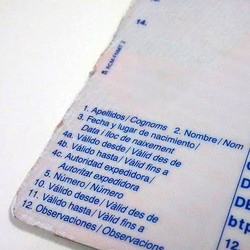 14.
1. Apellidos / Cognoms 2. Nombre / Nom
3. Fecha y lugar de nacimiento /
Data / lloc de naixement
4a. Válido desde / Vàlid des de
4b. Válido hasta / Vàlid fins a
4c. Autoridad expedidora /
Autoritat expedidora
5. Número / Número
10. Válido desde / Vàlid des de
11. Válido hasta / Vàlid fins a
12. Observaciones / Observacions
9.
C
D
DE
b
13